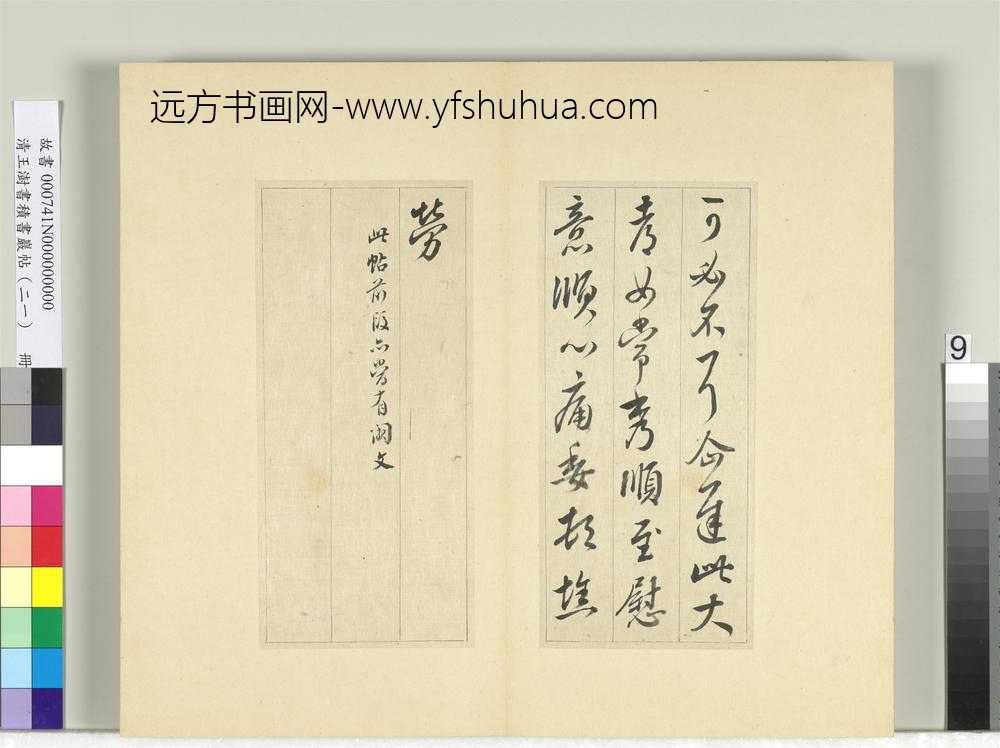 远方书画网-www.yfshuhua.com
故書 000741N000000000
清王澍書積書巖帖（二一） 冊
9
可必不可企遲此大
女常孝順至慰
意順心痛委頓
勞
此帖前後亦當有闕文